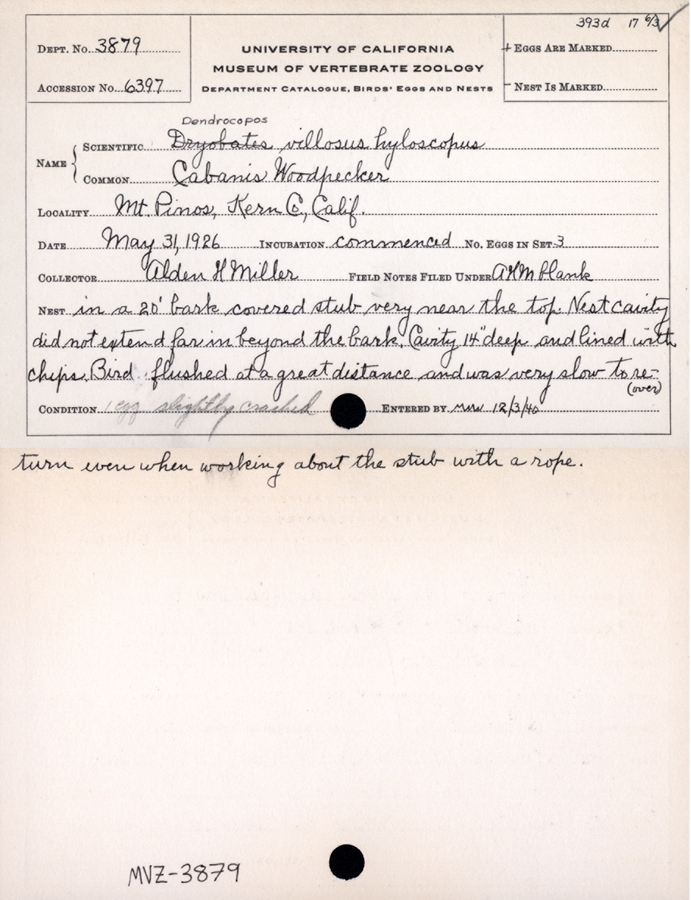 393d 17 6/3
DEPT. NO. 3879
ACCESSION NO. 6397
UNIVERSITY OF CALIFORNIA
MUSEUM OF VERTEBRATE ZOOLOGY
DEPARTMENT CATALOGUE, BIRDS' EGGS AND NESTS
+ EGGS ARE MARKED
- NEST IS MARKED
Dendrocopos
NAME { SCIENTIFIC Dryobates villosus hyloscopus
COMMON Cabanis Woodpecker
LOCALITY Mt. Pinos, Kern Co., Calif.
DATE May 31, 1926 INCUBATION commenced NO. EGGS IN SET 3
COLLECTOR Alden H Miller FIELD NOTES FILED UNDER AHM blank
NEST in a 20' bark covered stub very near the top. Nest cavity
did not extend far in beyond the bark. Cavity 14" deep and lined with
chips. Bird flushed at a great distance and was very slow to re-
(over)
CONDITION 1 egg slightly cracked ENTERED BY 12/3/40
turn even when working about the stub with a rope.
MVZ-3879